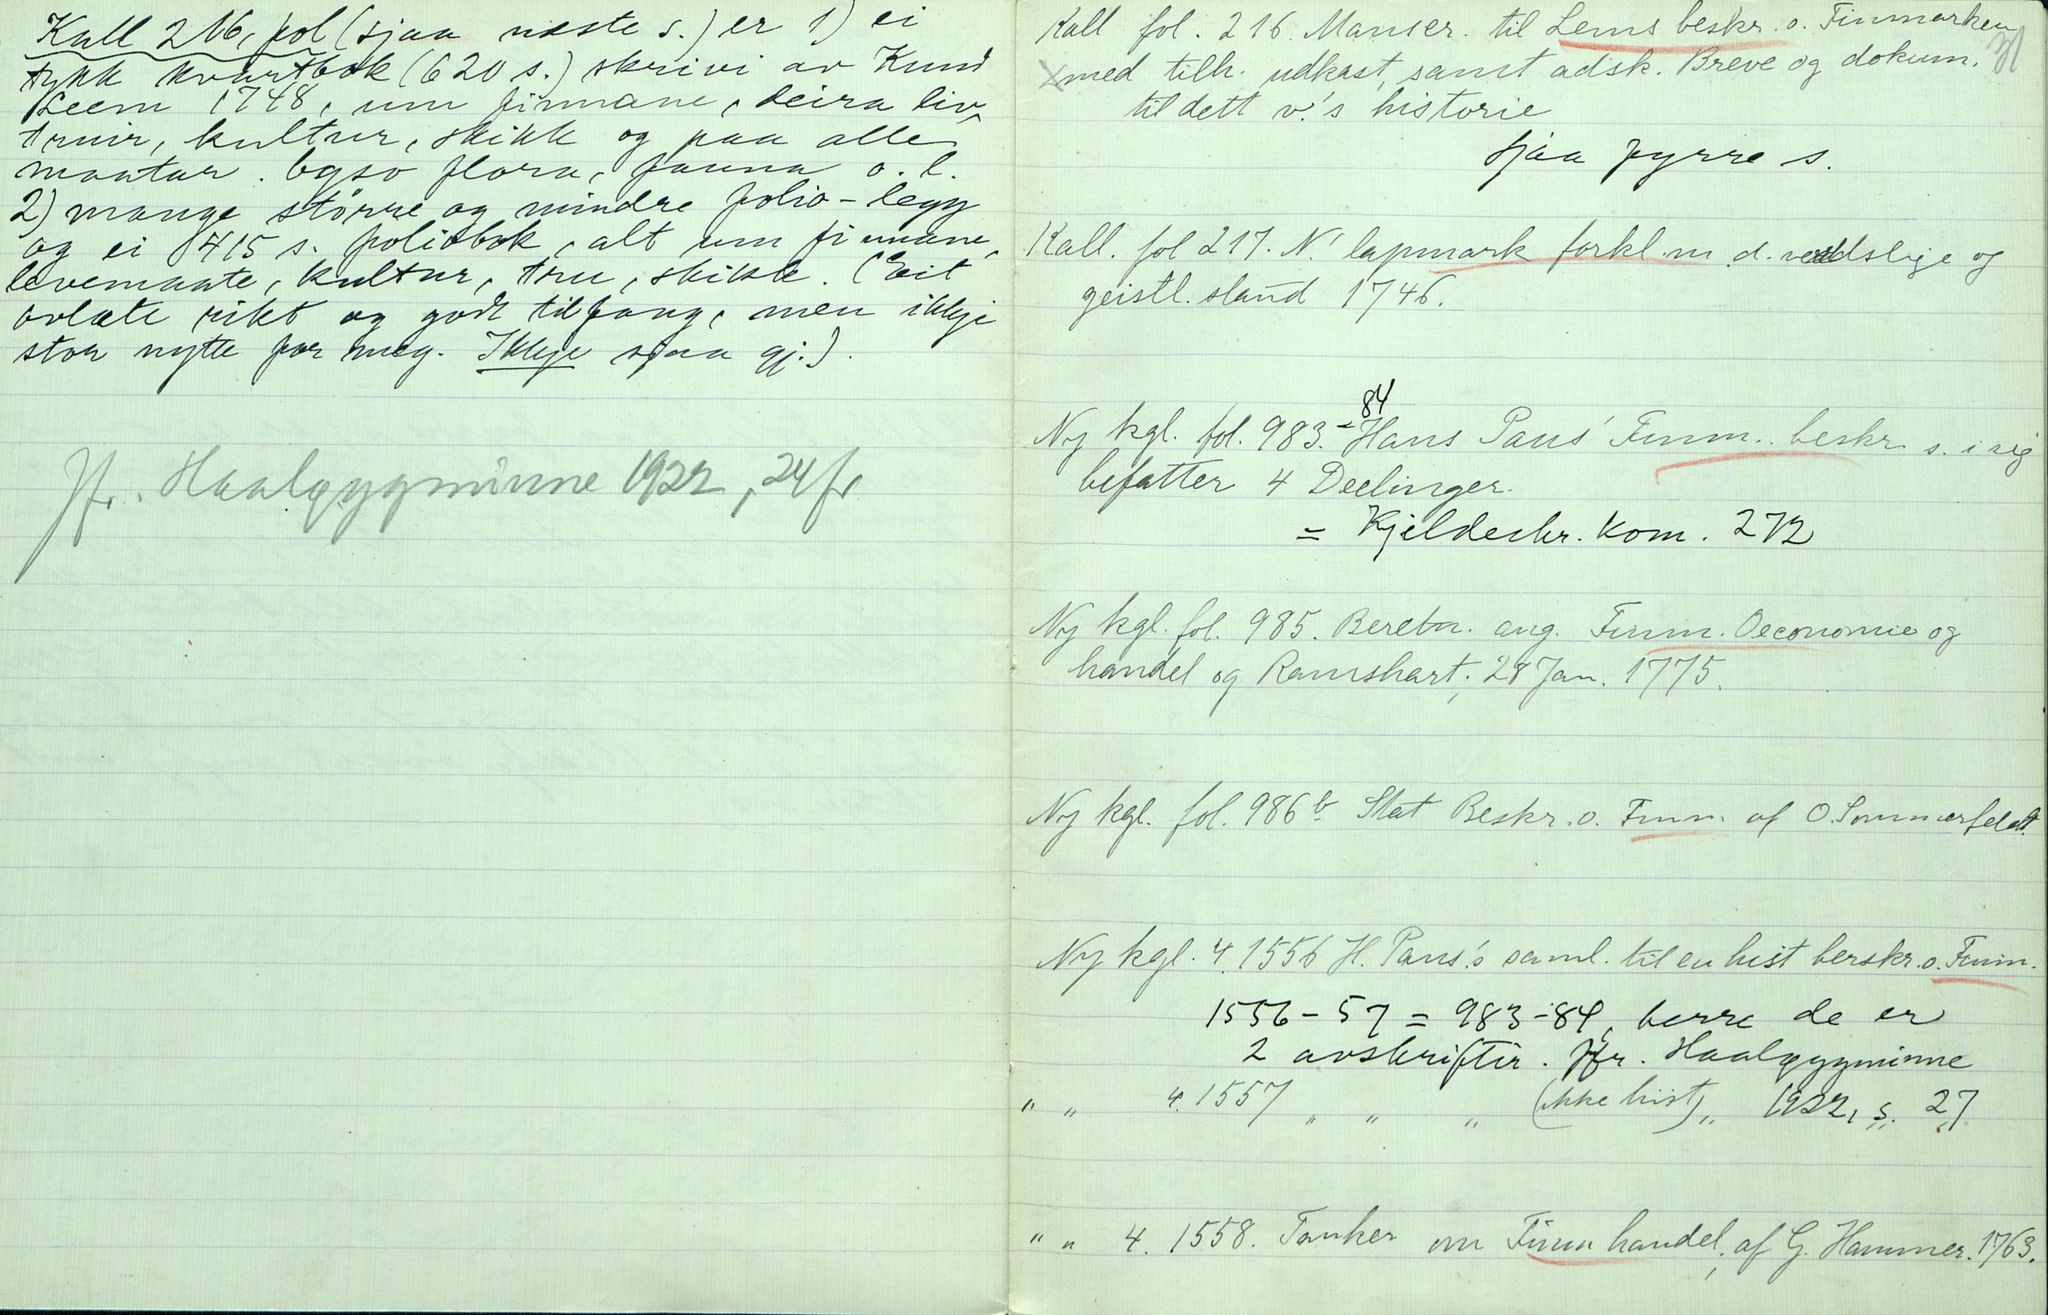 Kall 216, fol (sjaa næste s.) er 1) ei
tykk kvartbok (620 s.) skrivi av Knud
Leem 1748, um finnane, deira liv,
truir, kultur, skikk og paa alle
maatar. Ogso flora, fauna o. l.
2) mange större og mindre folio-legg
og ei 415 s. foliobok, alt um finnane,
levemaate, kultur, tru, skikk. (Eit
ovlæte rikt og godt tilfang, men ikkje
stor nytte for meg. Ikkje sjaa gj.).
Jfr. Haaløygminne 1922, 24 fr
Kall fol. 216. Manscr. til Lems beskr. o. Finmarken
med tilh. udkast, samt adsk. Breve og dokum.
til dett v.'s historie
sjaa fyrre s.
Kall. fol 217. N! lapmark forkl. m. d. verdslige og
geistl. stand 1746.
Ny kgl. fol. 983.-84 Hans Paus' Finm. beskr. s. i sig
befatter 4 Deelinger.
= Kjeldeskr. kom. 272
Ny kgl. fol. 985. Beretn. ang. Finm. Oeconomie og
handel og Ramshart, 28 Jan. 1775.
Ny kgl. fol. 986 b Stat Beskr. o. Finm. af O. Sommerfeldt.
Ny kgl. 4. 1556 H. Paus's saml. til en hist berskr. o. Finm.
1556-57 = 983-84, berre de er
2 avskriftir. Jfr. Haaløygminne
" " 4. 1557 " " " (ikke hist) " 1922, s. 27
" " 4. 1558. Tanker om Finm handel, af G. Hammer. 1763.